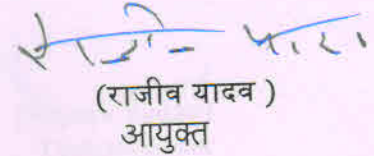 (राजीव यादव )
आयुक्त